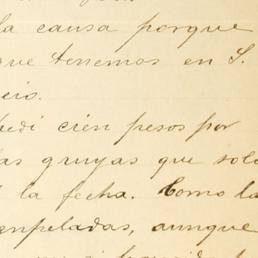 la causa porque
que tenemos en S.
cio.
pedi cien pesos por
las gruyas que sol
la fecha. Como la
enpeladas, aunque